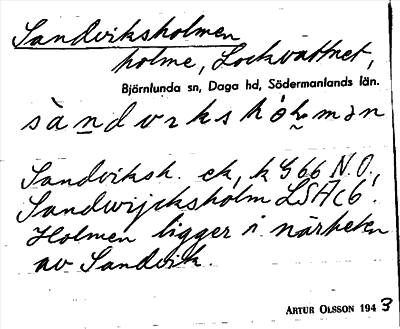 Sandviksholmen
holme, Lockvattnet,
Björnlunda sn, Daga hd, Södermanlands län.
sàndvikshòlmən
Sandviksh. ek, k G66 N.O.,
Sandwijcksholm LSA c6!
Holmen ligger i närheten
av Sandvik.
ARTUR OLSSON 1943